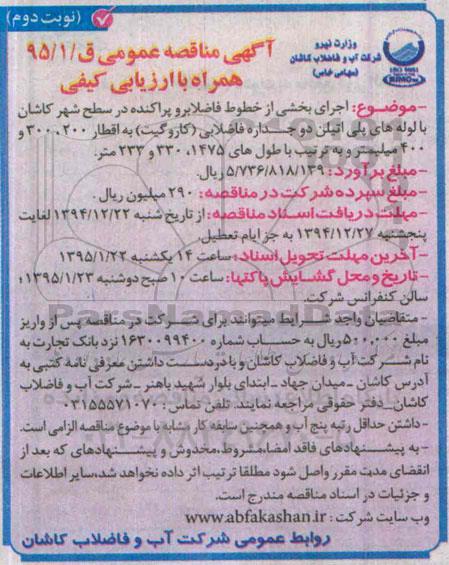 (نوبت دوم)
وزارت نیرو
شرکت آب و فاضلاب کاشان
(سهامی خاص)
آگهی مناقصه عمومی ق/۹۵/۱
همراه با ارزیابی کیفی
-موضوع: اجرای بخشی از خطوط فاضلابرو پراکنده در سطح شهر کاشان
با لوله های پلی اتیلن دو جداره فاضلابی (کاروگیت) به اقطار ۲۰۰، ۳۰۰ و
۴۰۰ میلیمتر و به ترتیب با طول های ۱۴۷۵، ۳۳۰ و ۲۳۳ متر.
-مبلغ برآورد: ۵/۷۳۶/۸۱۸/۱۳۹ ریال.
-مبلغ سپرده شرکت در مناقصه: ۲۹۰ میلیون ریال.
-مهلت دریافت اسناد مناقصه: از تاریخ شنبه ۱۳۹۴/۱۲/۲۲ لغایت
پنجشنبه ۱۳۹۴/۱۲/۲۷ به جز ایام تعطیل.
-آخرین مهلت تحویل اسناد: ساعت ۱۴ یکشنبه ۱۳۹۵/۱/۲۲
-تاریخ و محل گشایش پاکتها: ساعت ۱۰ صبح دوشنبه ۱۳۹۵/۱/۲۳؛
سالن کنفرانس شرکت.
-متقاضیان واجد شرایط میتوانند برای شرکت در مناقصه پس از واریز
مبلغ ۵۰۰,۰۰۰ ریال به حساب شماره ۱۶۳۰۰۹۹۴۰۰ نزد بانک تجارت به
نام شرکت آب و فاضلاب کاشان و با در دست داشتن معرفی نامه کتبی به
آدرس کاشان _میدان جهاد _ابتدای بلوار شهید باهنر _شرکت آب و فاضلاب
کاشان_دفتر حقوقی مراجعه نمایند. تلفن تماس: ۰۳۱۵۵۵۷۱۰۷۰
-داشتن حداقل رتبه پنج آب و همچنین سابقه کار مشابه با موضوع مناقصه الزامی است.
-به پیشنهادهای فاقد امضا، مشروط، مخدوش و پیشنهادهای که بعد از
انقضای مدت مقرر واصل شود مطلقا ترتیب اثر داده نخواهد شد، سایر اطلاعات
و جزئیات در اسناد مناقصه مندرج است.
وب سایت شرکت: www.abfakashan.ir
روابط عمومی شرکت آب و فاضلاب کاشان